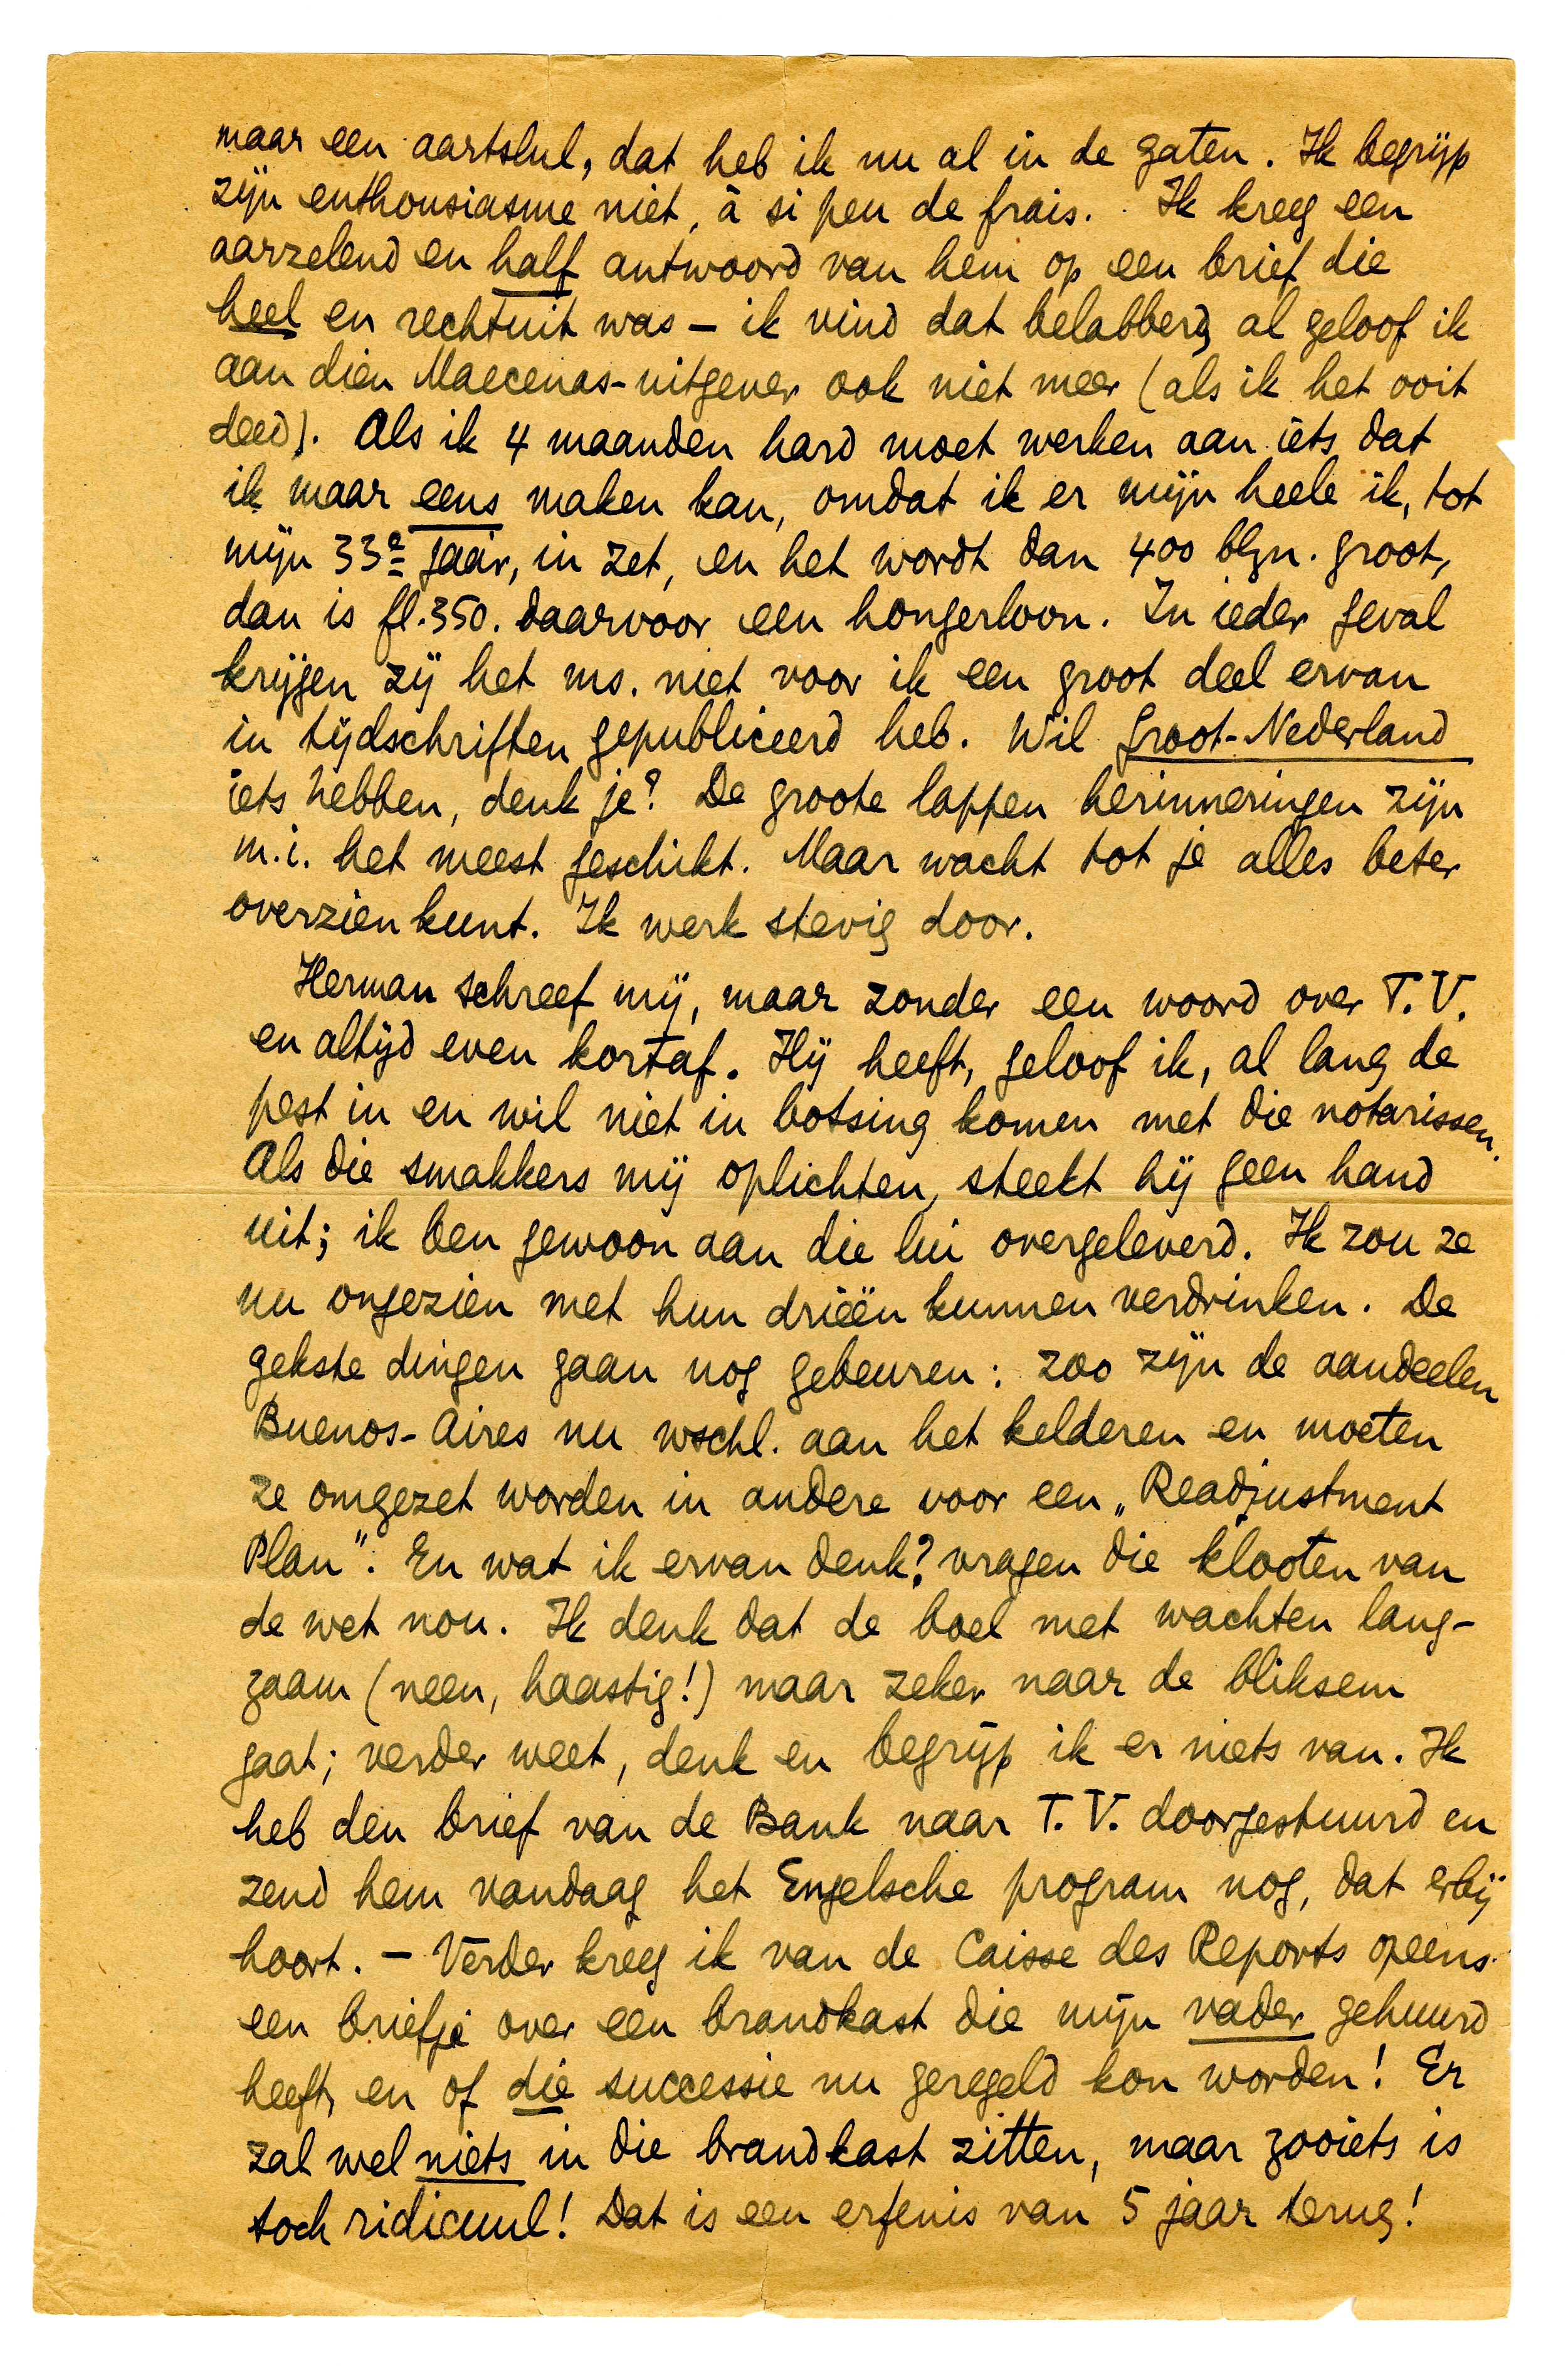 maar een aartslul, dat heb ik nu al in de gaten. Ik begrijp
zijn enthousiasme niet, à si peu de frais. Ik kreeg een
aarzelend en half antwoord van hem op een brief die
heel en rechtuit was – ik vind dat belabberd, al geloof ik
aan dien Maecenas-uitgever ook niet meer (als ik het ooit
deed). Als ik 4 maanden hard moet werken aan iets dat
ik maar eens maken kan, omdat ik er mijn heele ik, tot
mijn 33e jaar, in zet, en het wordt dan 400 blzn. groot,
dan is fl. 350. daarvoor een hongerloon. In ieder geval
krijgen zij het ms. niet voor ik een groot deel ervan
in tijdschriften gepubliceerd heb. Wil Groot-Nederland
iets hebben, denk je? De groote lappen herinneringen zijn
m.i. het meest geschikt. Maar wacht tot je alles beter
overzien kunt. Ik werk stevig door.
Herman schreef mij, maar zonder een woord over T.V.
en altijd even kortaf. Hij heeft, geloof ik, al lang de
pest in en wil niet in botsing komen met die notarissen.
Als die smakkers mij oplichten, steekt hij geen hand
uit; ik ben gewoon aan die lui overgeleverd. Ik zou ze
nu ongezien met hun drieën kunnen verdrinken. De
gekste dingen gaan nog gebeuren: zoo zijn de aandeelen
Buenos-Aires nu wschl. aan het kelderen en moeten
ze omgezet worden in andere voor een „Readjustment
Plan". En wat ik ervan denk? vragen die klooten van
de wet nou. Ik denk dat de boel met wachten lang-
zaam (neen, haastig!) maar zeker naar de bliksem
gaat; verder weet, denk en begrijp ik er niets van. Ik
heb den brief van de Bank naar T.V. doorgestuurd en
zend hem vandaag het Engelsche program nog, dat erbij
hoort. – Verder kreeg ik van de Caisse des Reports opeens
een briefje over een brandkast die mijn vader gehuurd
heeft, en of die successie nu geregeld kon worden! Er
zal wel niets in die brandkast zitten, maar zooiets is
toch ridicuul! Dat is een erfenis van 5 jaar terug!